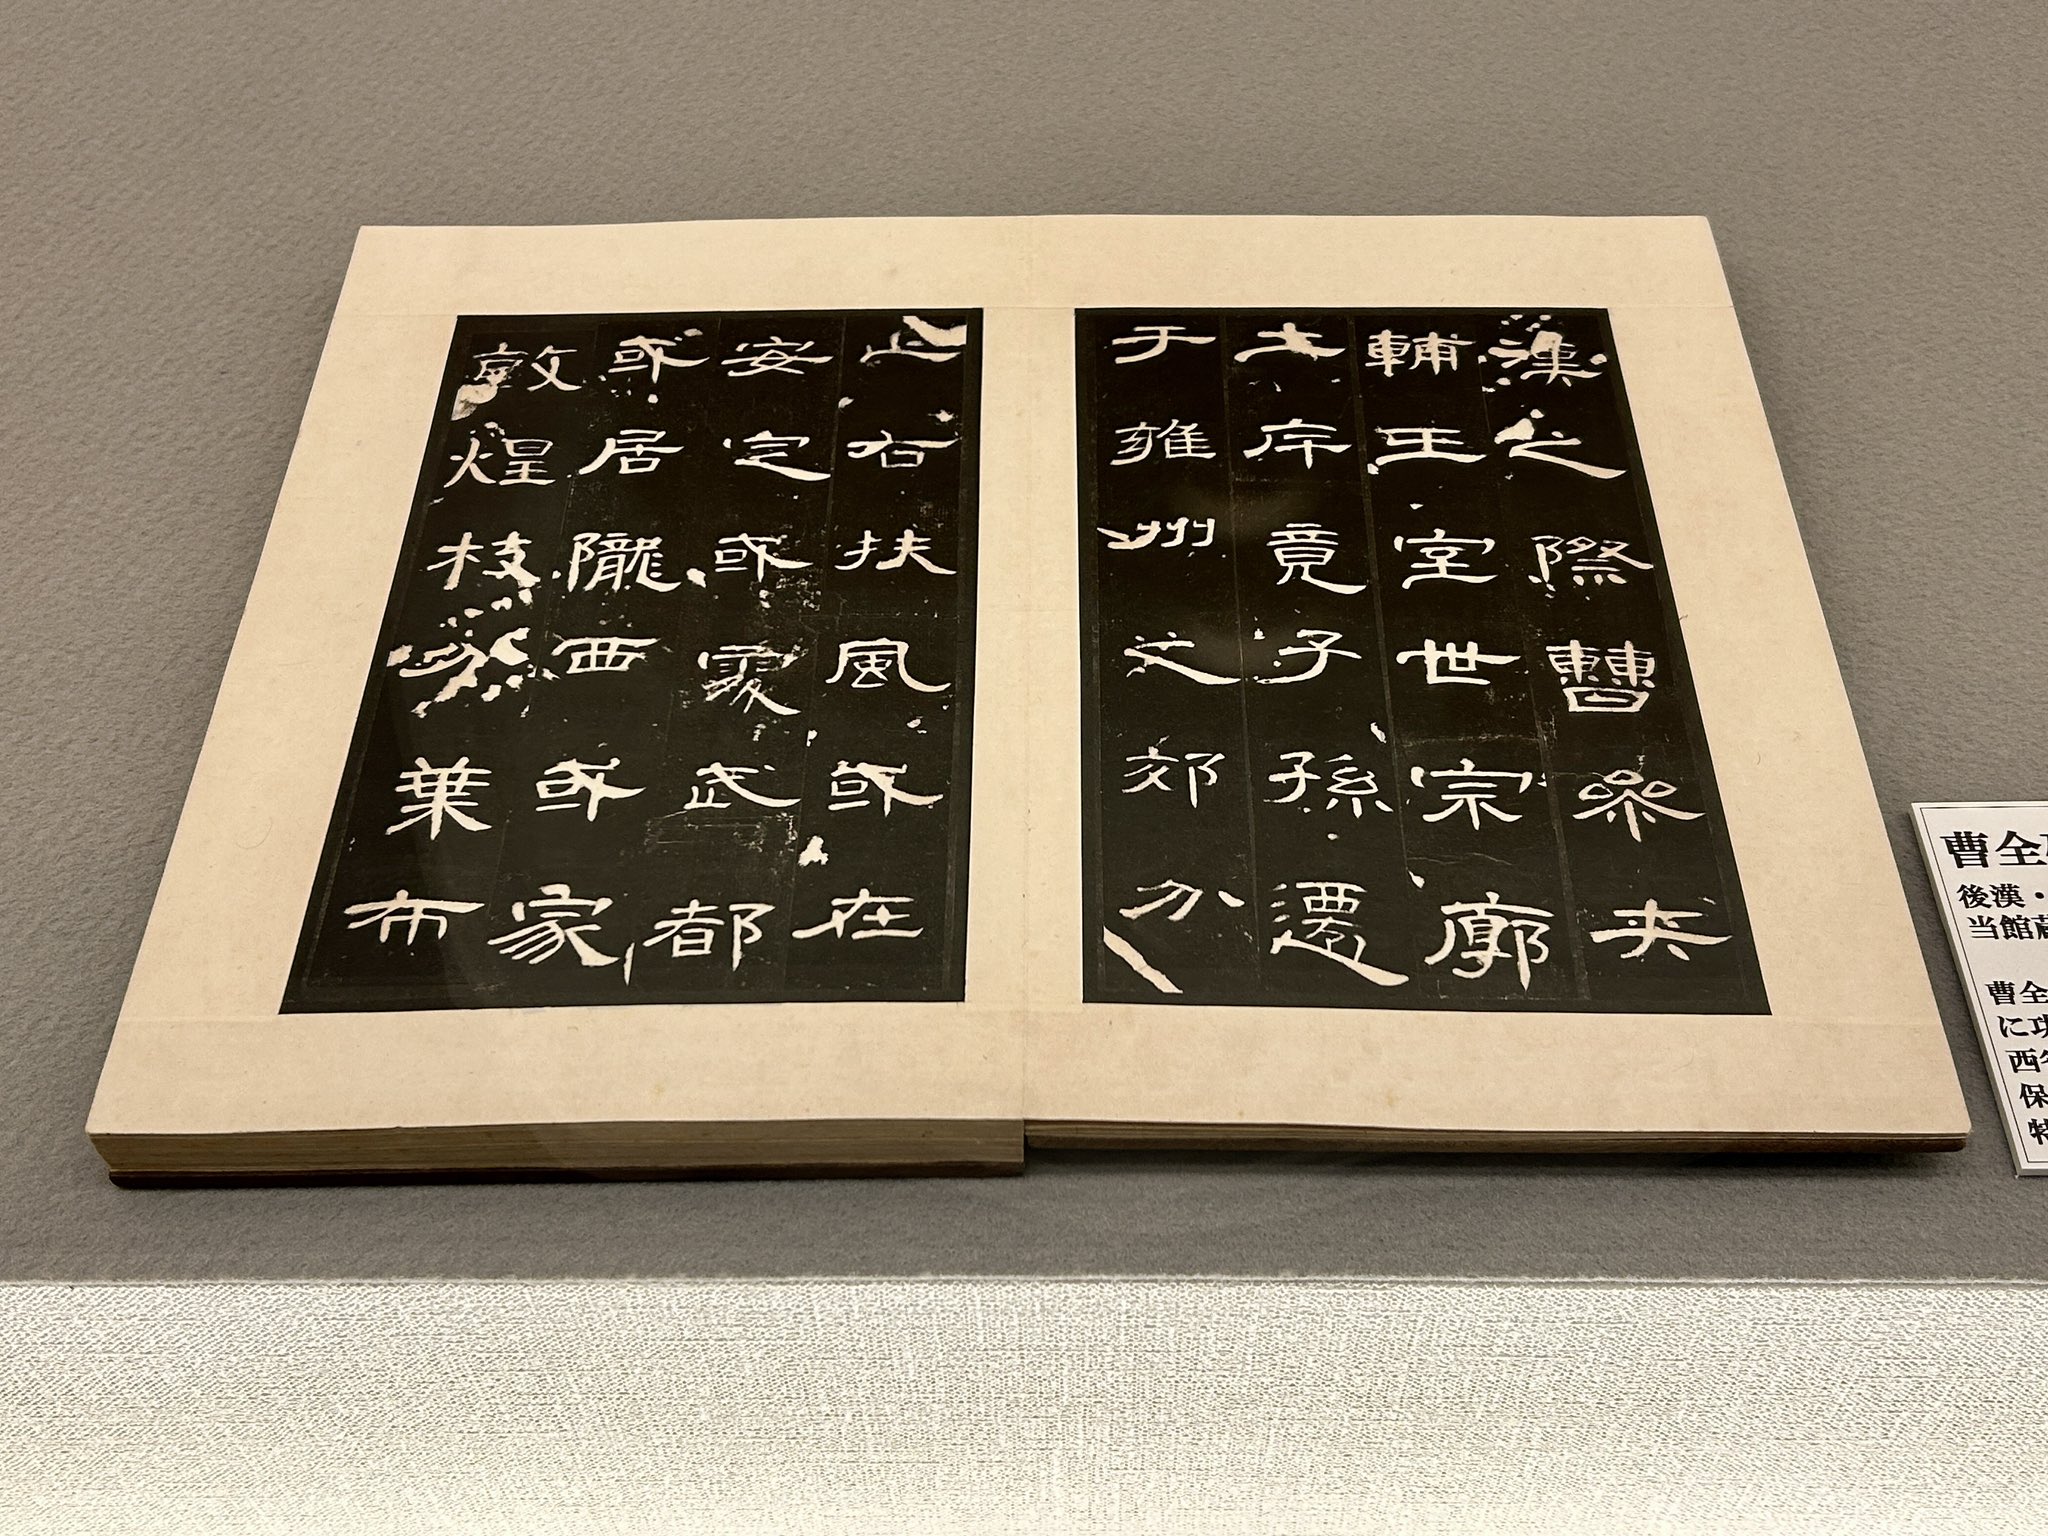 漢之際曹參夾
輔王室世宗廓
土斥竟子孫遷
于雍州之郊分
止右扶風或在
安定或處武都
或居隴西或家
敦煌枝分葉布
曹全
後漢・
当館蔵
曹全
に
西
保